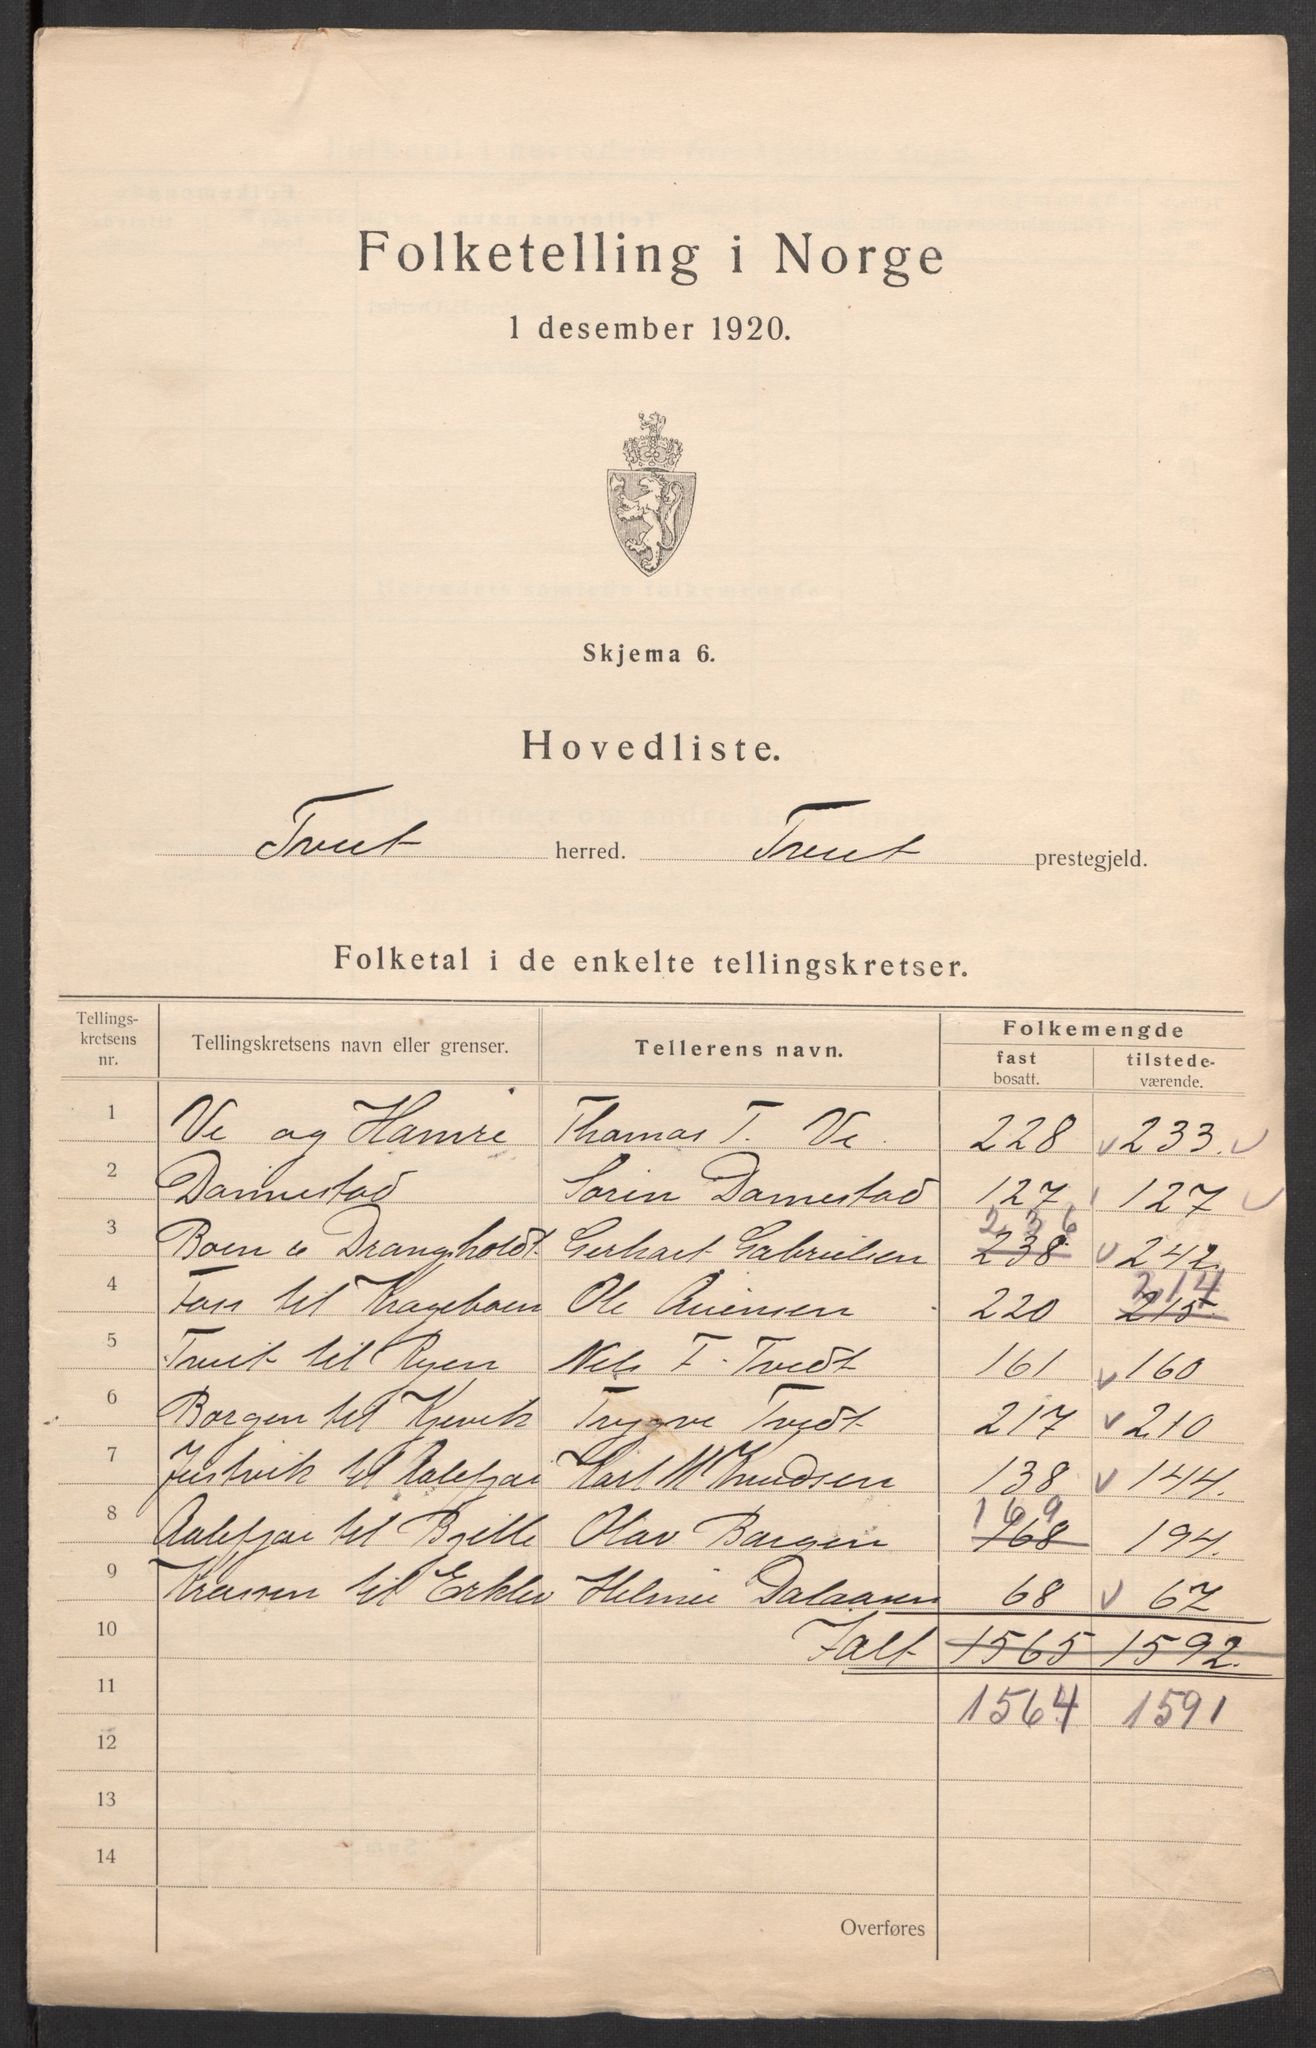 Folketelling i Norge
1 desember 1920.
Skjema 6.
Hovedliste.
Tveit herred. Tveit prestegjeld.
Folketal i de enkelte tellingskretser.
Tellings-
kretsens
nr.
Tellingskretsens navn eller grenser.
Tellerens navn.
Folkemengde
fast
bosatt.
tilstede-
værende.
1 Ve og Hamre Thomas T. Ve. 228 233.
2 Dønnestad Sørin Dønnestad 127 127
3 Boen o Drangsholdt Gerhart Gabrielsen 238 236 242
4 Foss til Krageboen Ole 220 215. 214
5 Tveit til Ryen Nels F. Tvedt 161 160
6 Borgen til Kjevik Trygve Tvedt 217 210
7 Justvik til Aalefjær Karl M Knudsen 138 144.
8 Aalefjær til Olav Borgen 168 169 194.
9 til Dalaanen 68 67
10 Ialt 1565 1592.
11 1564 1591
12
13
14
Overføres